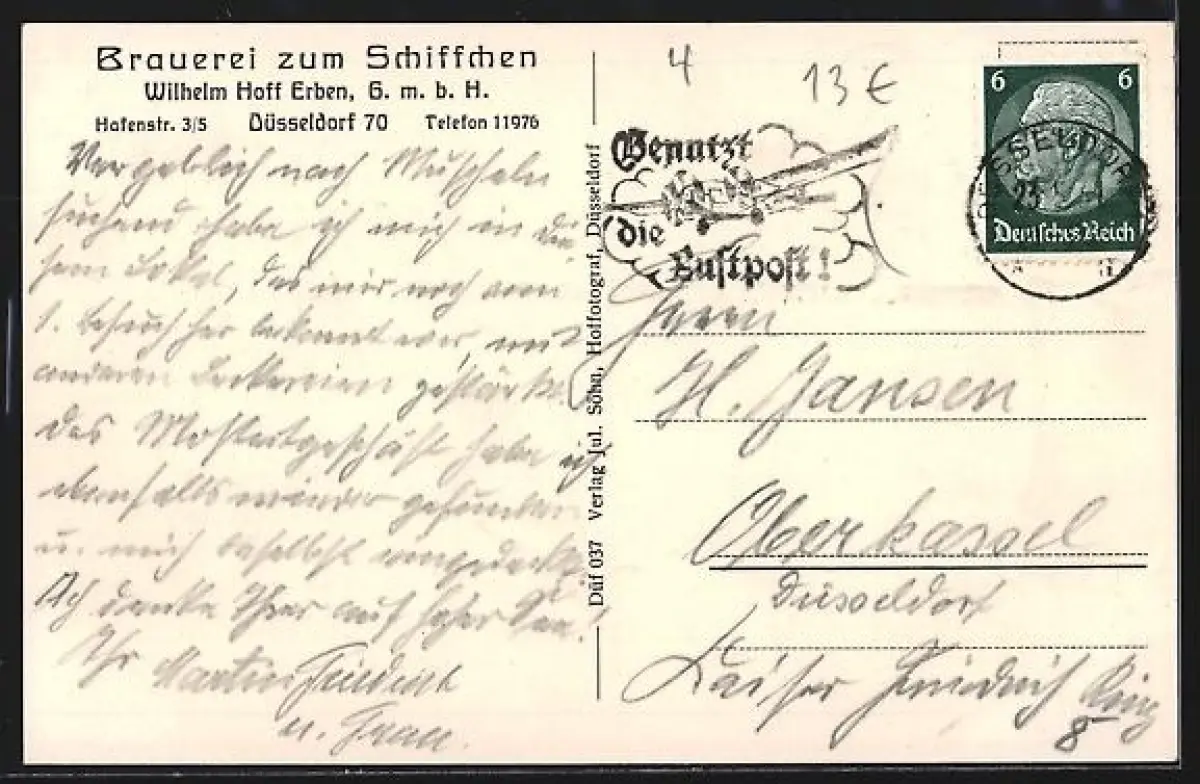 Brauerei zum Schiffchen
Wilhelm Hoff Erben, G. m. b. H.
Hafenstr. 3/5 Düsseldorf 70 Telefon 11976
Vergeblich nach Muscheln
suchend habe ich mich in die
sem Lokal, das mir noch vom
1. Besuch her bekannt war, mit
anderen Leckereien gestärkt.
Das Mostertgeschäft habe ich
ebenfalls wieder gefunden
u. mich daselbst eingedeckt.
Ich danke Ihnen auf
Ihr Martin Friedrich
u. Frau.
Düf 037 Verlag Jul. Söhn, Hoffotograf, Düsseldorf
4
13 €
Benutzt
die
Luftpost!
6 6
Deutsches Reich
Herrn
H. Jansen
Oberkassel
Düsseldorf
Kaiser Friedrich Ring
8